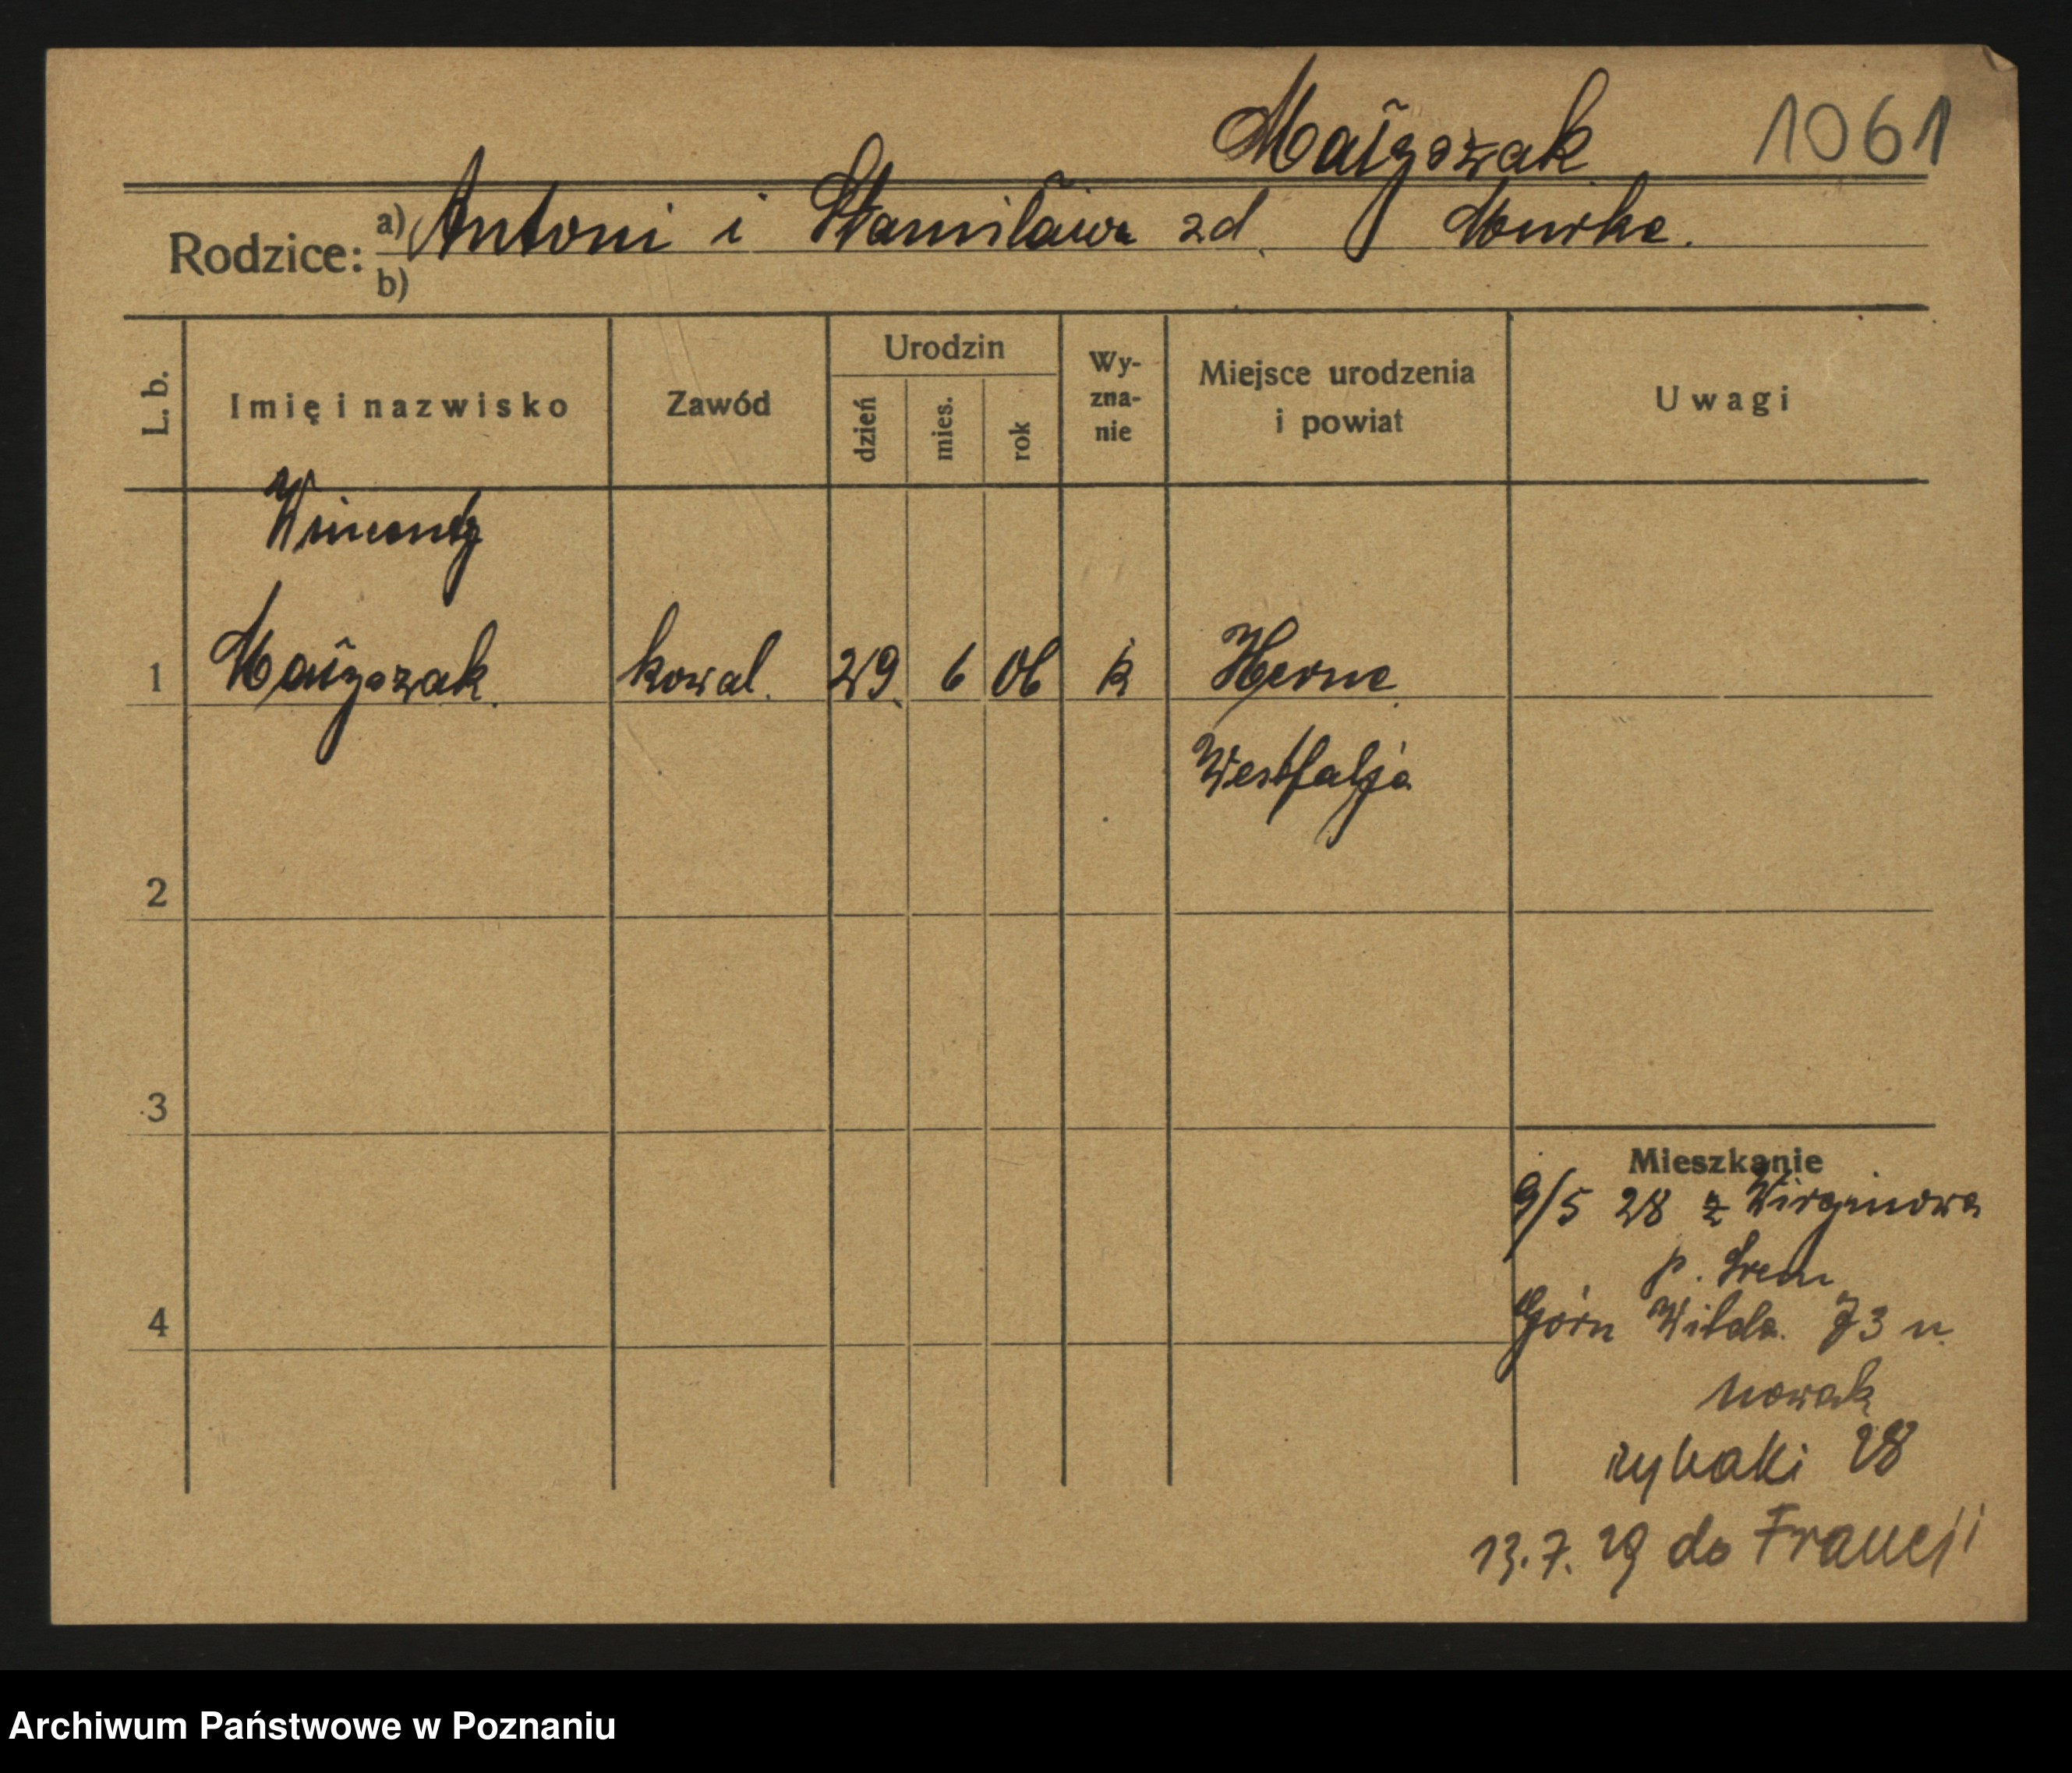 Majszczak 1061
Rodzice: a) Antoni i Stanisława zd. Murke.
b)
L. b. Imię i nazwisko Zawód Urodzin dzień mies. rok Wy-zna-nie Miejsce urodzenia i powiat Uwagi
Wincenty
1 kowal. 29. 6 06 k Herne
Westfalja
2
3
Mieszkanie
9/5 28 z Wirginowa
p. Śrem
4 Górn Wilda. 73 u.
Nowak
rybaki 28
13.7. 29 do Francji
Archiwum Państwowe w Poznaniu